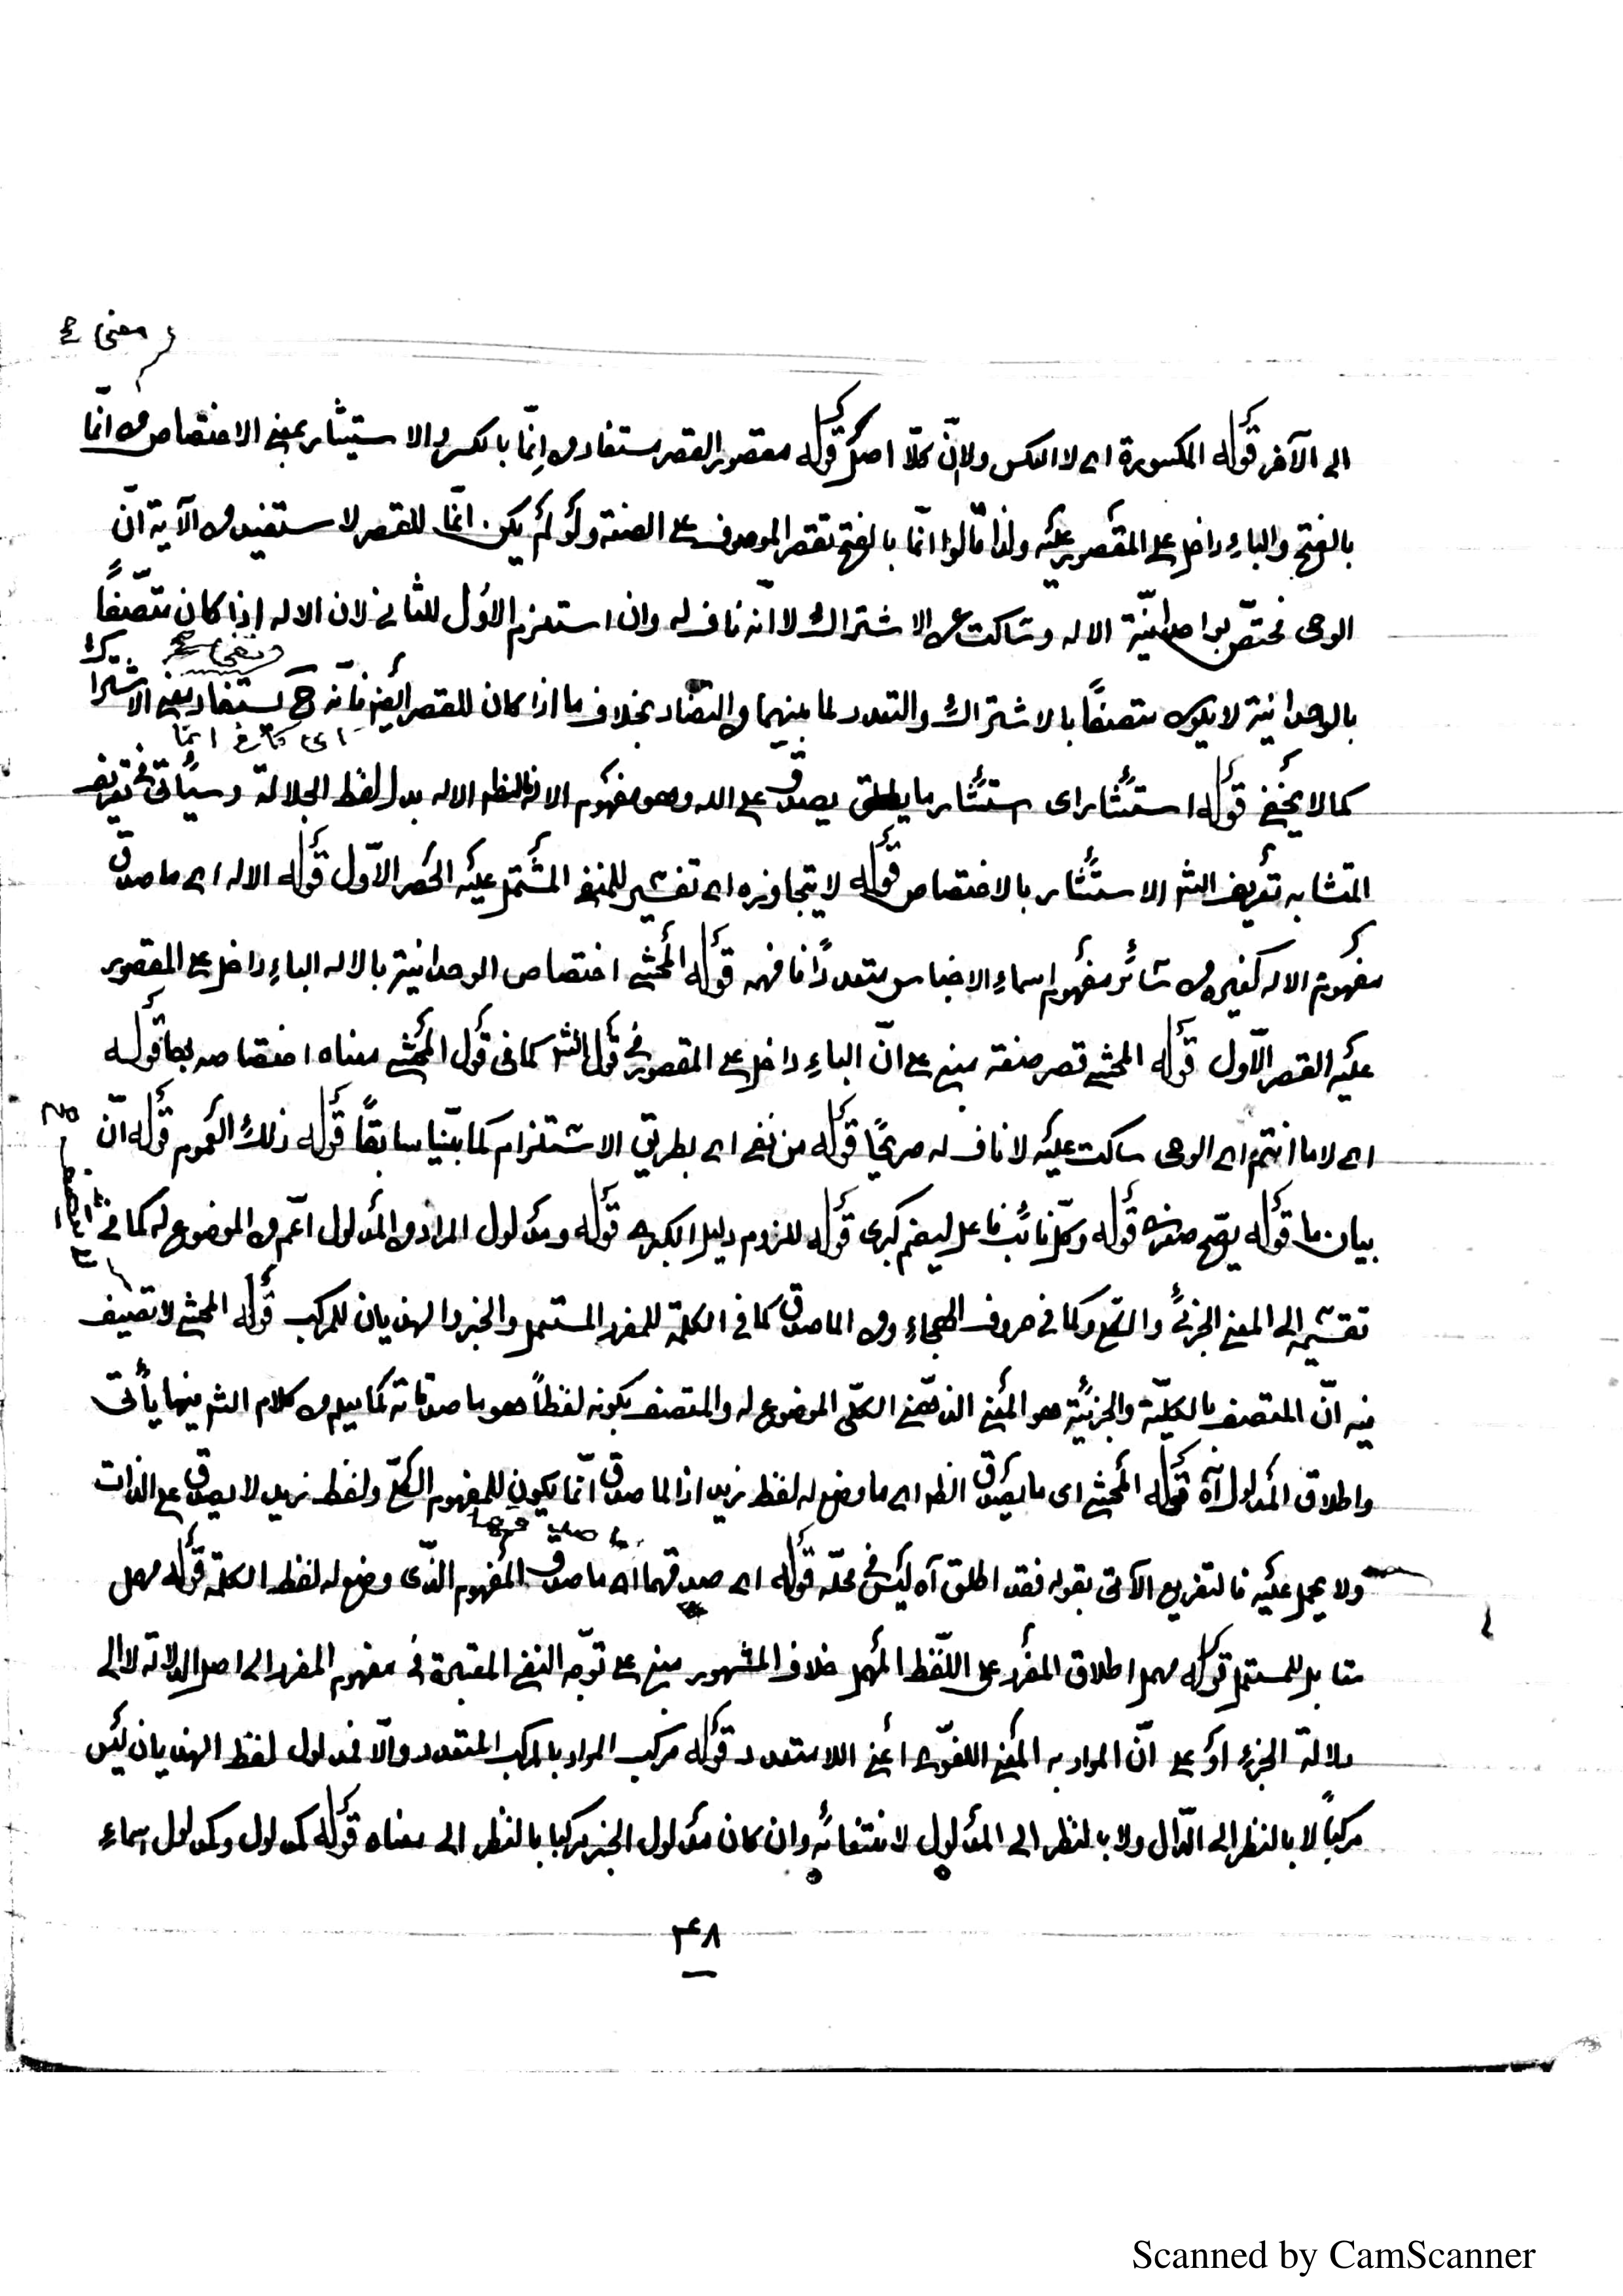 معنى
الى الآخر قوله المكسورة اى لا العكس ولانّ كلّا اصل قوله مقصور القصر مستفاد من اِنّما بالكسر والاستيثار بمعنى الاختصاص من انّما
بالفتح والباء داخل على المقصور عليه ولذا قالوا انّما بالفتح تقصر الموصوف على الصفة ولو لم يكن انّما للقصر لاستفيد من الآية انّ
الوحى مختصّ بواحدانيّة الاله وساكت عن الاشتراك لا انّه ناف له وان استلزم الاوّل للثانى لان الاله اذا كان متّصفاً
بالوحدانية لا يكون متصفاً بالاشتراك والتعدد لما بينهما من التضاد بخلاف ما اذا كان للقصر ايضا فانه ح يستفاد نفى الاشتراك
اى كما فى انما
كما لا يخفى قوله استئثار اى استئثار ما يصدق على الله وهو مفهوم الاله فالنظم الاله بدل لفظ الجلالة وسيأتى فى تعريف
المتشابه تعريف الشر الاستئثار بالاختصاص قوله لا يتجاوزه اى تفسير للمنفى المشتمل عليه الحصر الاوّل قوله الاله اى ما صدق
مفهوم الاله كغيره من سائر مفهوم اسماء الاجناس متعددًا فافهم قوله المحشى اختصاص الوحدانية بالاله الباء داخل على المقصور
عليه القصر الاّول قوله المحشى قصر صفة مبنى على انّ الباء داخل على المقصور فى قول الشر كما فى قول المحشى معناه اختصاصه بها قوله
اى لا ما انتم اى الوحى ساكت عليه لا ناف له صريحًا قوله من نفى اى بطريق الاستلزام كما بيّنا سابقاً قوله ذلك العموم قوله انّ
بيان ما قوله يصّح صغرى قوله وكلّ نائب فاعل ليضم كبرى قوله للزوم دليل الكبرى قوله ومدلول المراد من المدلول اعّم من الموضوع له كما فى
تقسيمه الى المعنى الجزئى والكلى وكما فى حروف الهجاء ومن الماصدق كما فى الكلمة للمفرد المستعمل والخبر والهذيان للمركب قوله المحشى لا تصنيف
فيه انّ المتصف بالكليّة والجزئية هو المعنى الذهنى الكلّى الموضوع له والمتصف بكونه لفظاً هو ما صدقاته كما يعلم من كلام الشر فيما يأتى
واطلاق المدلول آه قوله المحشى اى ما يصدق الظ اى ما وضع له لفظ زيد اذ الماصدق انّما يكون للمفهوم الكلّى ولفظ زيد لا يصدق على الذات
ولا يحمل عليه فالتفريع الآتى بقوله فقد اطلق آه ليس فى محلّه قوله اى صدقهما اى ما صدق المفهوم الذّى وضع له لفظ الكلمة قوله مهمل
مقابل للمستعمل قوله مهمل اطلاق المفرد على اللّفظ المهمل خلاف المشهور مبنى على توجّه النفى المعتبرة فى مفهوم المفرد الى اصل الدلالة لا الى
دلالة الجزء او على انّ المراد به المعنى اللغوّى اعنى اللامتعدد قوله مركب المراد بالمركب المتعدد والّا فمدلول لفظ الهذيان ليس
مركباً لا بالنظر الى الدّال ولا بالنظر الى المدلول لانتفائه وان كان مدلول الخبر مركبا بالنظر الى معناه قوله كمدلول وكمدلول اسماء
٣٤٨
Scanned by CamScanner